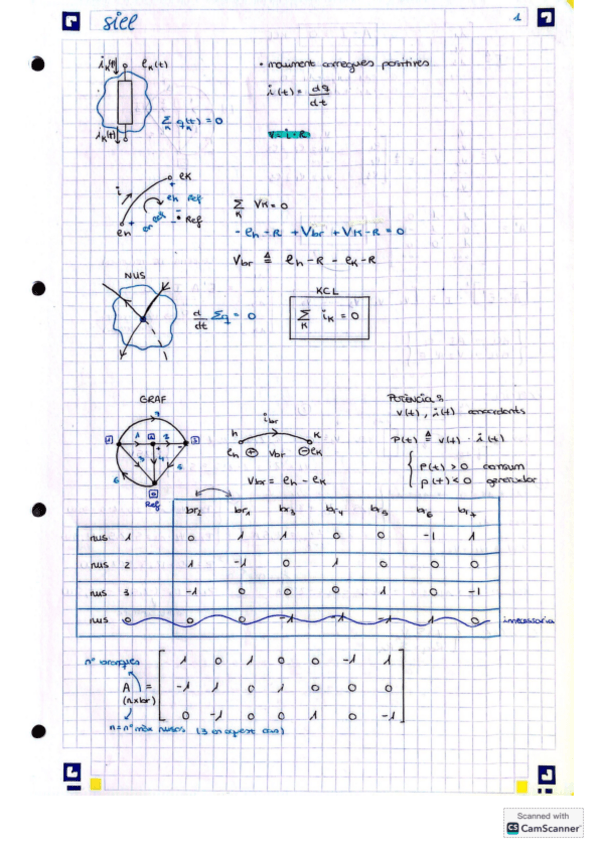 siee
1
iₖ(t)
eₖ(t)
• moviment càrregues positives
i(t) = dq/dt
Σₖ qₖ(t) = 0
iₖ(t)
V = i · R
eₖ
i
Ref
eₕ
Σₖ Vₖ = 0
- eₕ-R + Vbr + Vₖ-R = 0
Vbr ≜ eₕ-R - eₖ-R
NUS
d/dt Σq = 0
KCL
Σₖ iₖ = 0
GRAF
7
1 1 2 2 3
3 4 5
6
0
Ref
ibr
h K
eₕ ⊕ Vbr ⊖ eₖ
Vbr = eₕ - eₖ
Potència:
v(t), i(t) concordants
P(t) ≜ v(t) · i(t)
p(t) > 0 consum
p(t) < 0 generador
br2 br1 br3 br4 br5 br6 br7
nus 1 0 1 1 0 0 -1 1
nus 2 1 -1 0 1 0 0 0
nus 3 -1 0 0 0 1 0 -1
nus 0 0 0 -1 -1 -1 1 0 innecessària
nº branques
A = (nxbr)
1 0 1 0 0 -1 1
-1 1 0 1 0 0 0
0 -1 0 0 1 0 -1
n = nº màx nusos (3 en aquest cas)
Scanned with
CS CamScanner